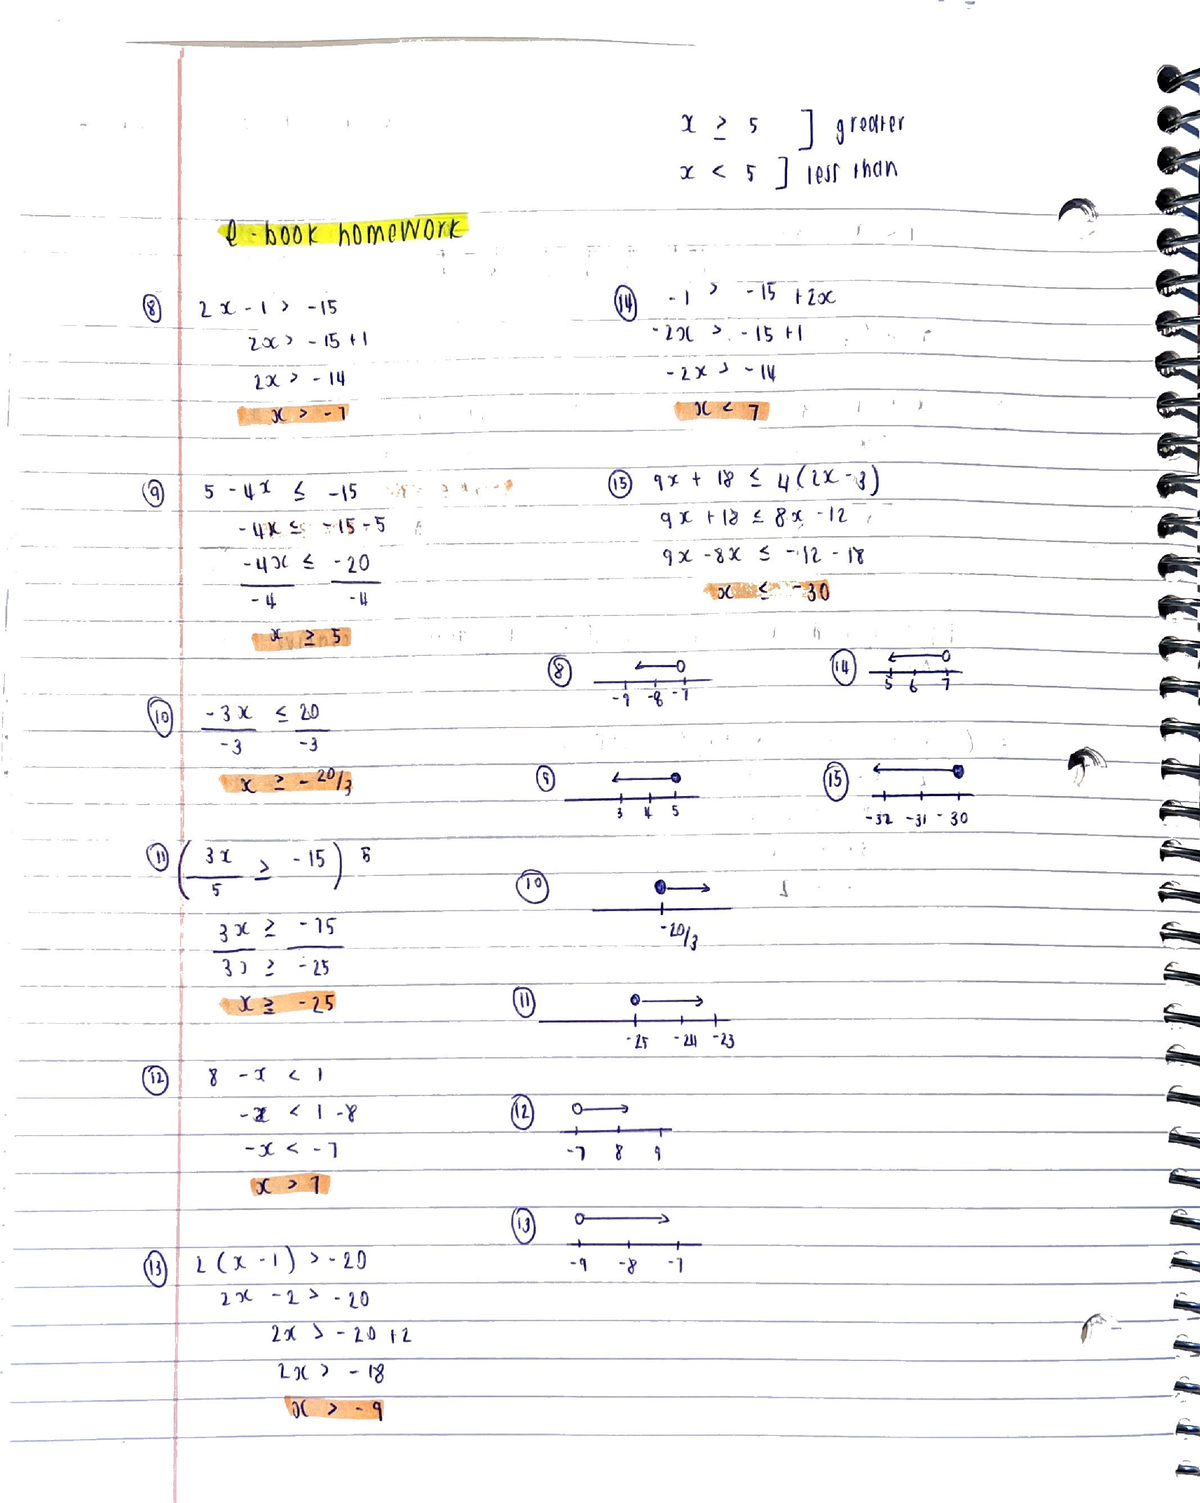 x ≥ 5 ] greater
x < 5 ] less than
e-book homework
(8) 2x - 1 > -15
2x > -15 + 1
2x > -14
x > -7
(9) 5 - 4x ≤ -15
-4x ≤ -15 - 5
-4x ≤ -20
-4 -4
x ≥ 5
(10) -3x ≤ 20
-3 -3
x ≥ -20/3
(11) (3x ≥ -15) 5
5
3x ≥ -75
3) ≥ -25
x ≥ -25
(12) 8 - x < 1
-x < 1 - 8
-x < -7
x > 7
(13) 2(x - 1) > -20
2x - 2 > -20
2x > -20 + 2
2x > -18
x > -9
(14) -1 > -15 + 2x
-2x > -15 + 1
-2x > -14
x < 7
(15) 9x + 18 ≤ 4(2x - 3)
9x + 18 ≤ 8x - 12
9x - 8x ≤ -12 - 18
x ≤ -30
(8)
-9 -8 -7
(14)
5 6 7
(9)
3 4 5
(15)
-32 -31 -30
(10)
-20/3
(11)
-25 -24 -23
(12)
-7 8 9
(13)
-9 -8 -7